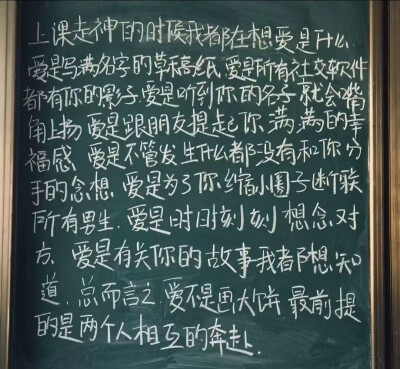 上课走神的时候我都在想爱是什么
爱是写满名字的草稿纸.爱是所有社交软件
都有你的影子.爱是听到你的名字就会嘴
角上扬.爱是跟朋友提起你满满的幸
福感.爱是不管发生什么都没有和你分
手的念想.爱是为了你缩小圈子断联
所有男生.爱是时时刻刻想念对
方.爱是有关你的故事我都想知
道.总而言之.爱不是画大饼最前提
的是两个人相互的奔赴.